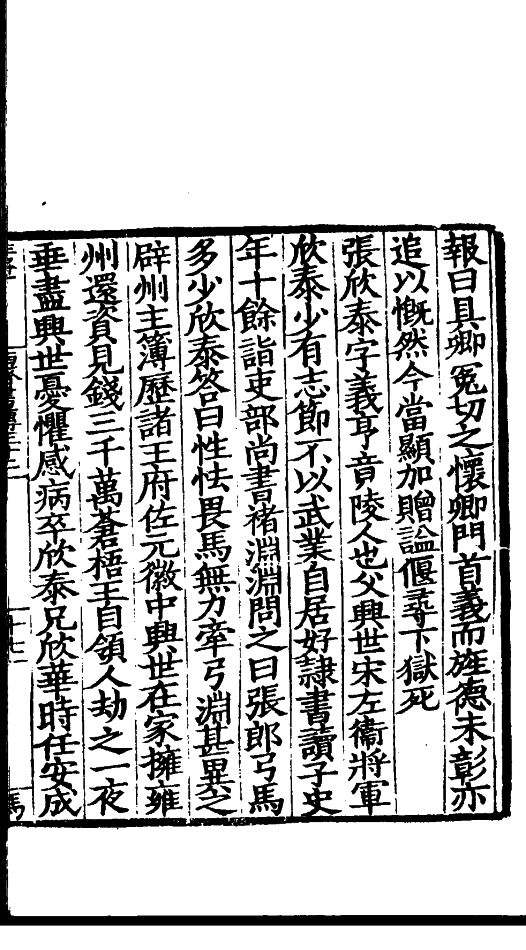 報曰具卿冤切之懷卿門首義而旌德未彰亦
追以慨然今當顯加贈諡偃尋下獄死
張欣泰字義亨竟陵人也父興世宋左衞將軍
欣泰少有志節不以武業自居好隸書讀子史
年十餘詣吏部尚書褚淵淵問之曰張郎弓馬
多少欣泰答曰性怯畏馬無力牽弓淵甚異之
辟州主簿歷諸王府佐元徽中興世在家擁雍
州還資見錢三千萬蒼梧王自領人劫之一夜
垂盡興世憂懼感病卒欣泰兄欣華時任安成